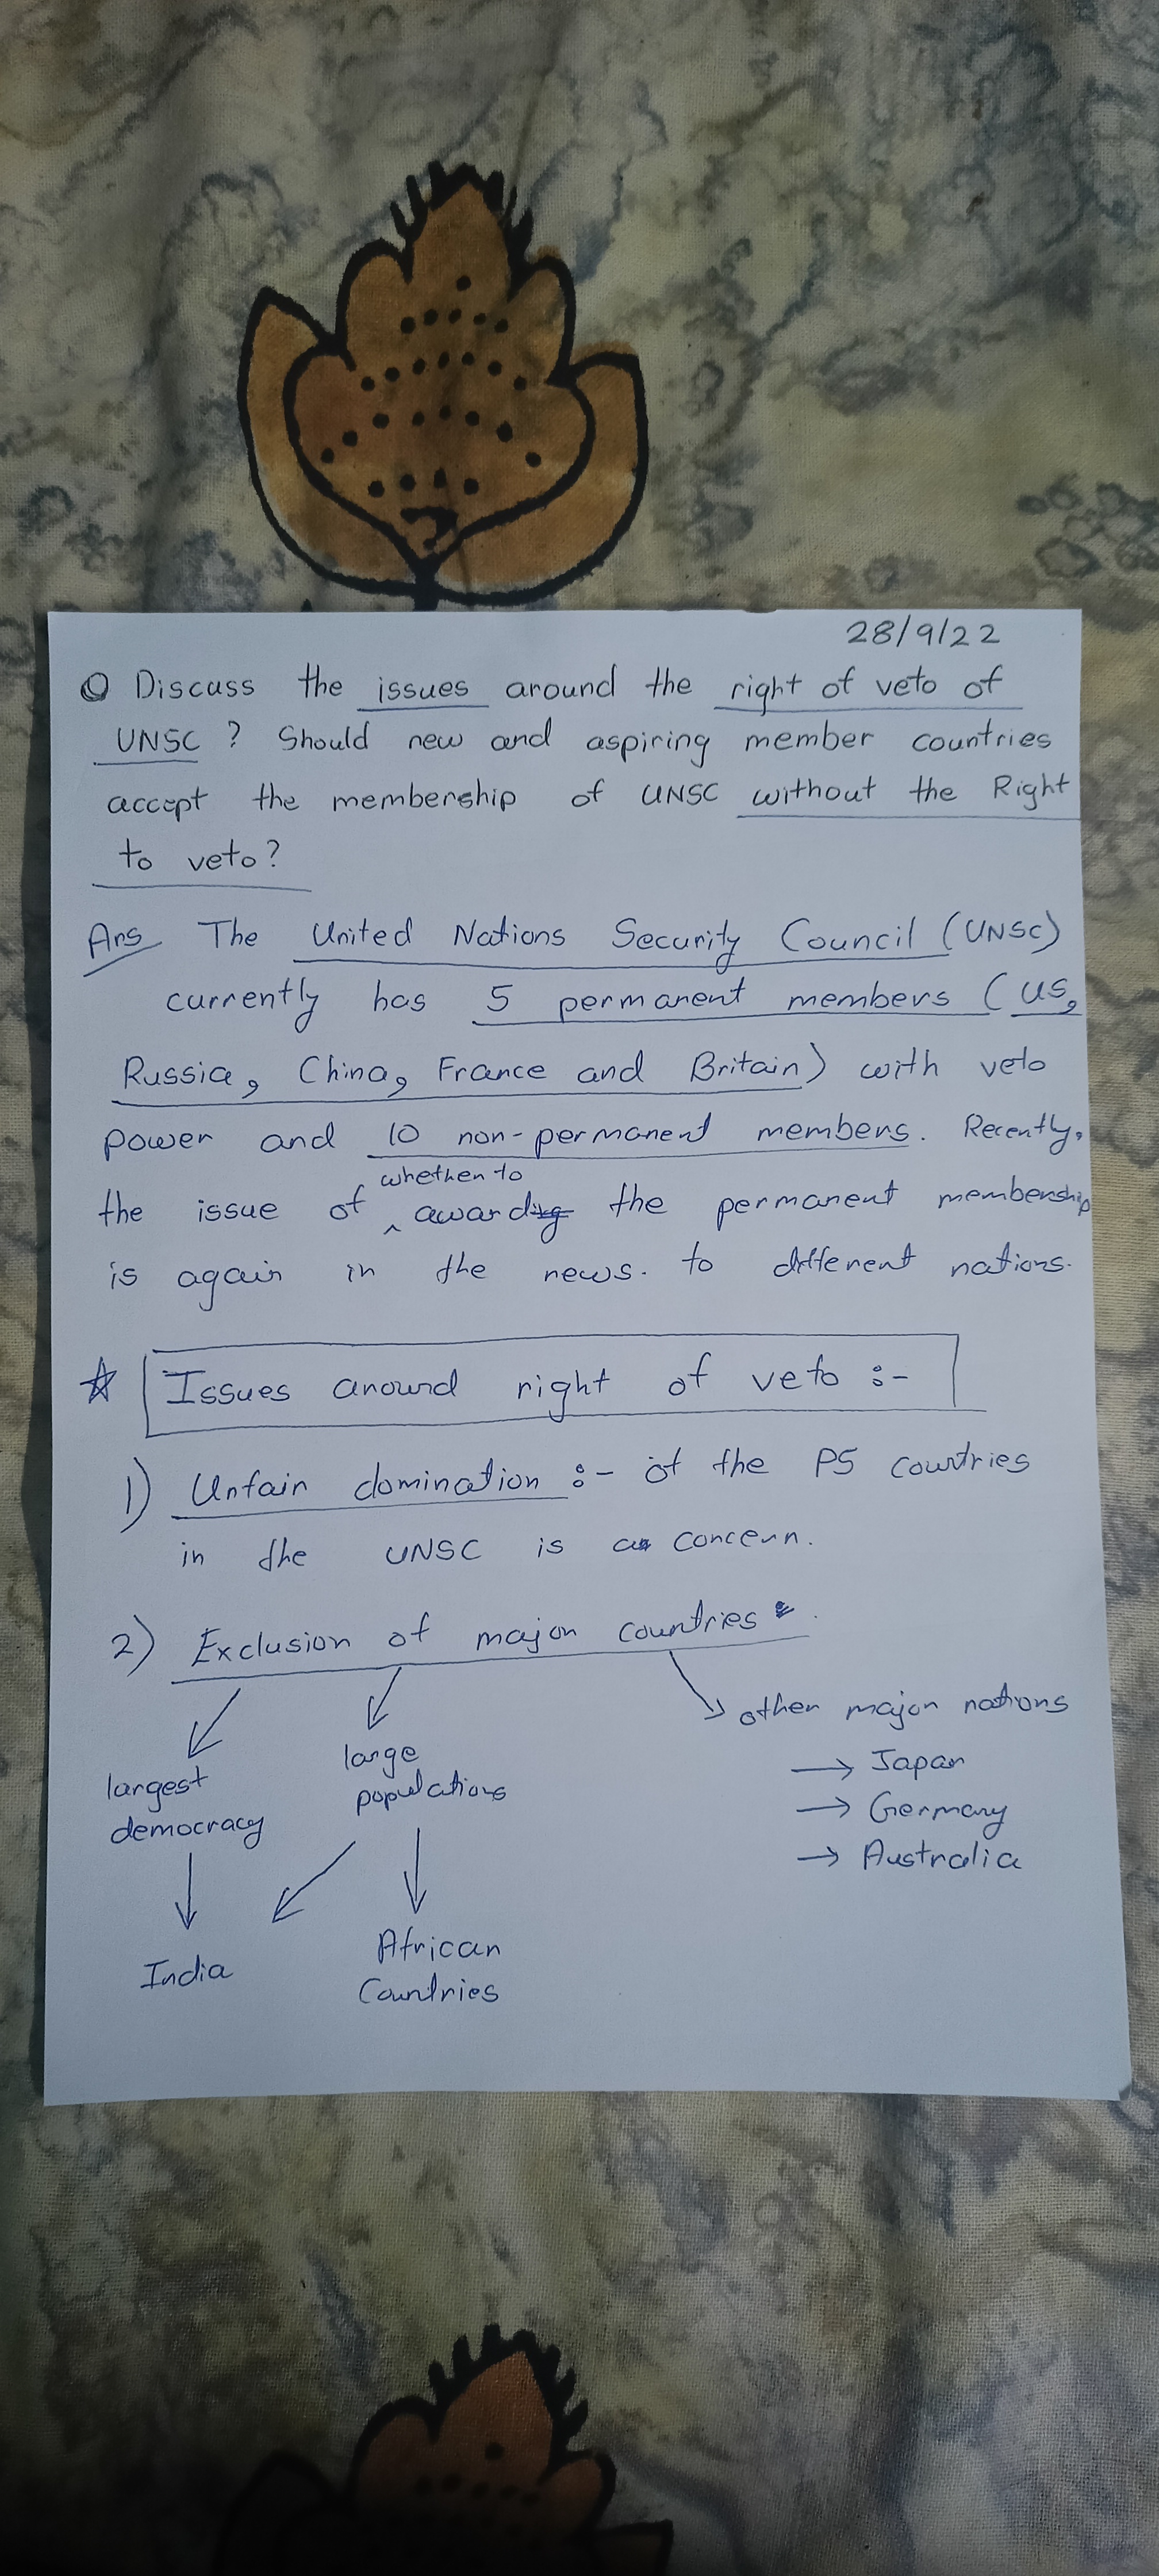 28/9/22
Q Discuss the issues around the right of veto of
UNSC ? Should new and aspiring member countries
accept the membership of UNSC without the Right
to veto?
Ans The United Nations Security Council (UNSC)
currently has 5 permanent members (US,
Russia, China, France and Britain) with veto
power and 10 non-permanent members. Recently,
whether to
the issue of ^ award the permanent membership
is again in the news. to different nations.
☆ Issues around right of veto :-
1) Unfair domination :- of the P5 countries
in the UNSC is a concern.
2) Exclusion of major countries .
other major nations
→ Japan
→ Germany
→ Australia
large
populations
largest
democracy
India
African
Countries